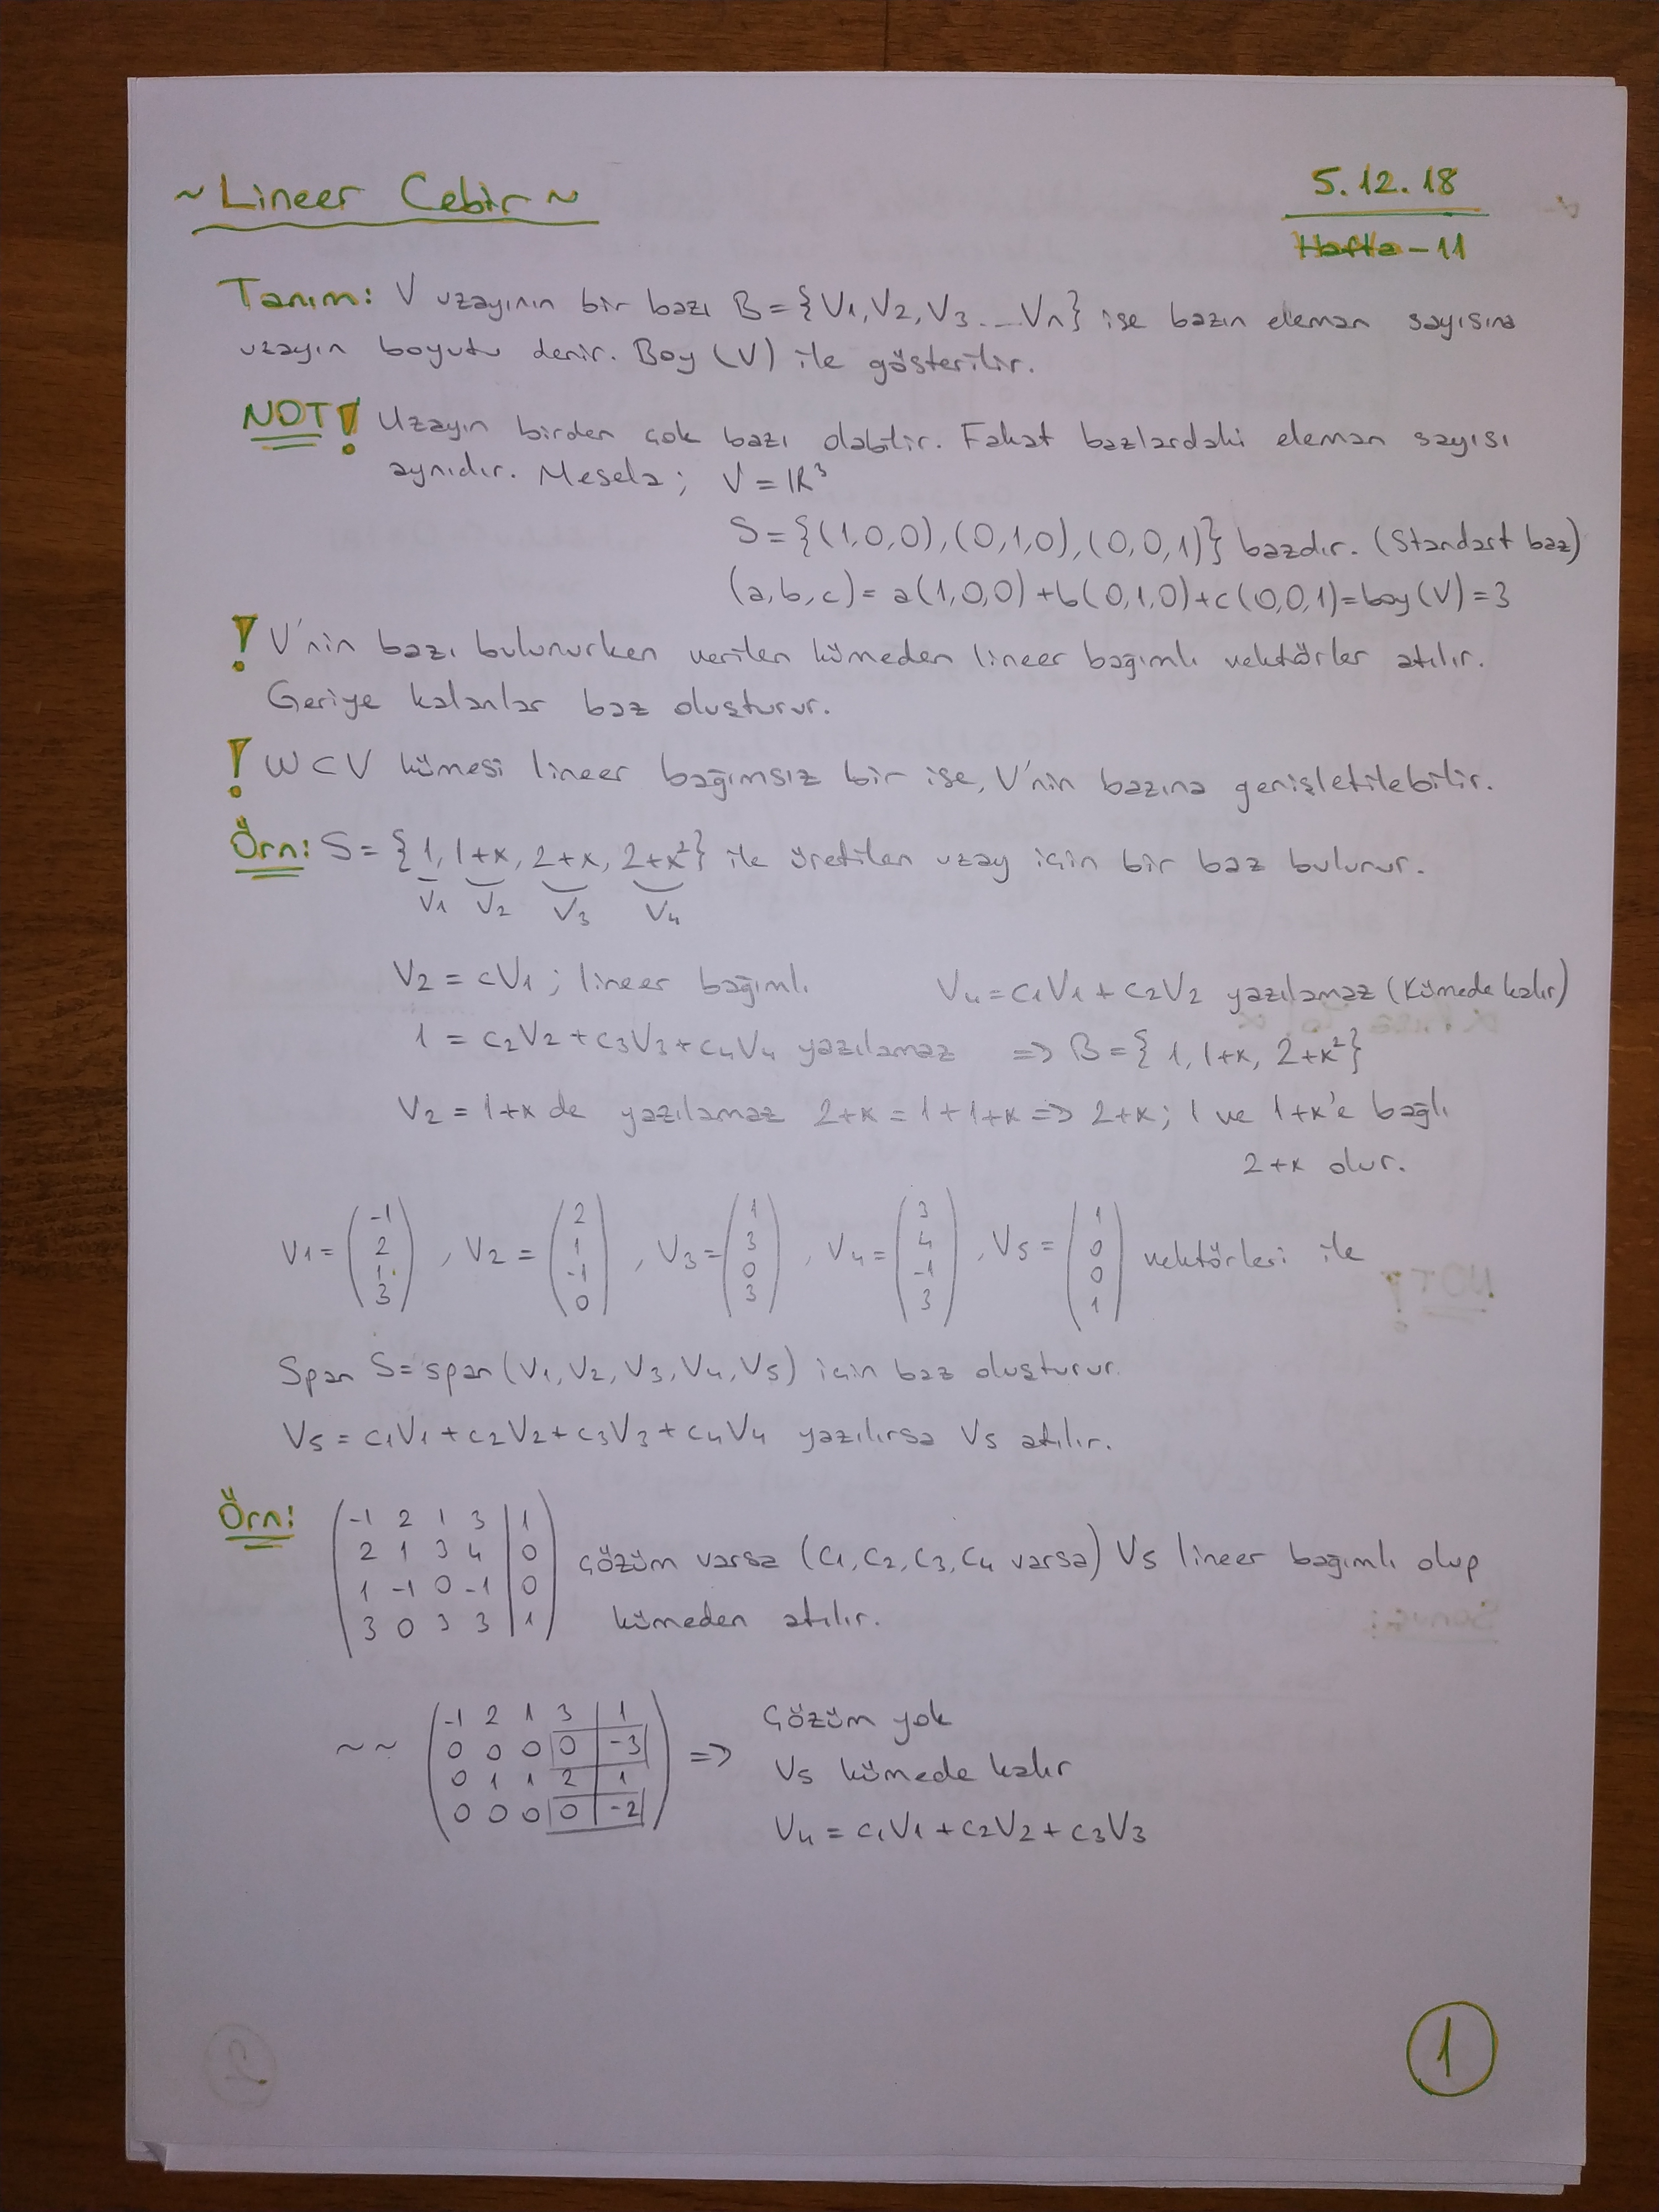 ~ Lineer Cebir ~
5.12.18
Hafta - 11
Tanım: V uzayının bir bazı B = {V1, V2, V3 ... Vn} ise bazın eleman sayısına
uzayın boyutu denir. Boy (V) ile gösterilir.
NOT! Uzayın birden çok bazı olabilir. Fakat bazlardaki eleman sayısı
aynıdır. Mesela; V = ℝ³
S = {(1,0,0), (0,1,0), (0,0,1)} bazdır. (Standart baz)
(a,b,c) = a(1,0,0) + b(0,1,0) + c(0,0,1) = boy(V) = 3
! V'nin bazı bulunurken verilen kümeden lineer bağımlı vektörler atılır.
Geriye kalanlar baz oluşturur.
! W⊂V kümesi lineer bağımsız bir ise, V'nin bazına genişletilebilir.
Örn: S = {1, 1+x, 2+x, 2+x²} ile üretilen uzay için bir baz bulunur.
V1 V2 V3 V4
V2 = cV1 ; lineer bağımlı V4 = c1V1 + c2V2 yazılamaz (Kümede kalır)
1 = c2V2 + c3V3 + c4V4 yazılamaz => B = {1, 1+x, 2+x²}
V2 = 1+x de yazılamaz 2+x = 1+1+x => 2+x; 1 ve 1+x'e bağlı
2+x olur.
V1 = (-1 2 1 3), V2 = (2 1 -1 0), V3 = (1 3 0 3), V4 = (3 4 -1 3), V5 = (1 0 0 1) vektörleri ile
Span S = span (V1, V2, V3, V4, V5) için baz oluşturur.
V5 = c1V1 + c2V2 + c3V3 + c4V4 yazılırsa V5 atılır.
Örn:
-1 2 1 3 | 1
2 1 3 4 | 0 çözüm varsa (c1, c2, c3, c4 varsa) V5 lineer bağımlı olup
1 -1 0 -1 | 0
3 0 3 3 | 1 kümeden atılır.
-1 2 1 3 | 1 Çözüm yok
~~ 0 0 0 0 | -3 =>
0 1 1 2 | 1 V5 kümede kalır
0 0 0 0 | -2
V4 = c1V1 + c2V2 + c3V3
1